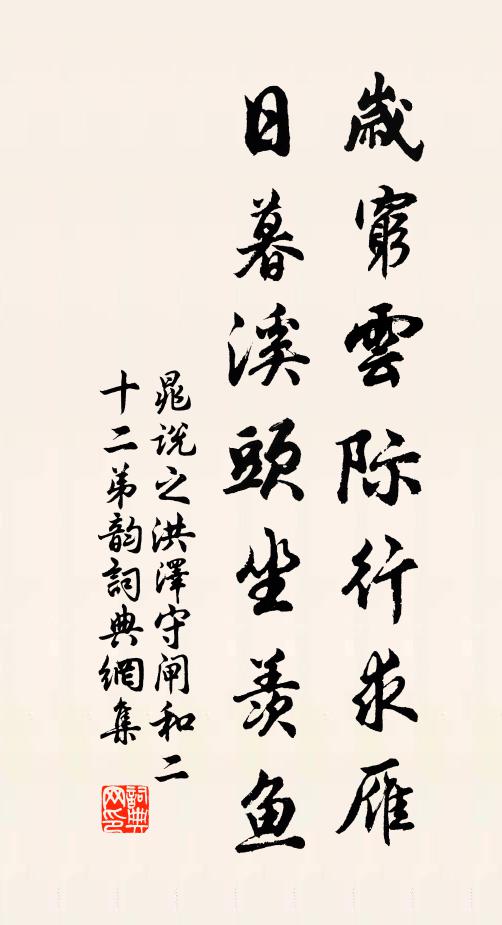 歲窮雲际行求雁
日暮溪頭坐羨鱼
晁说之洪澤守闸和二
十二弟韵詞典網集
詞典
网印